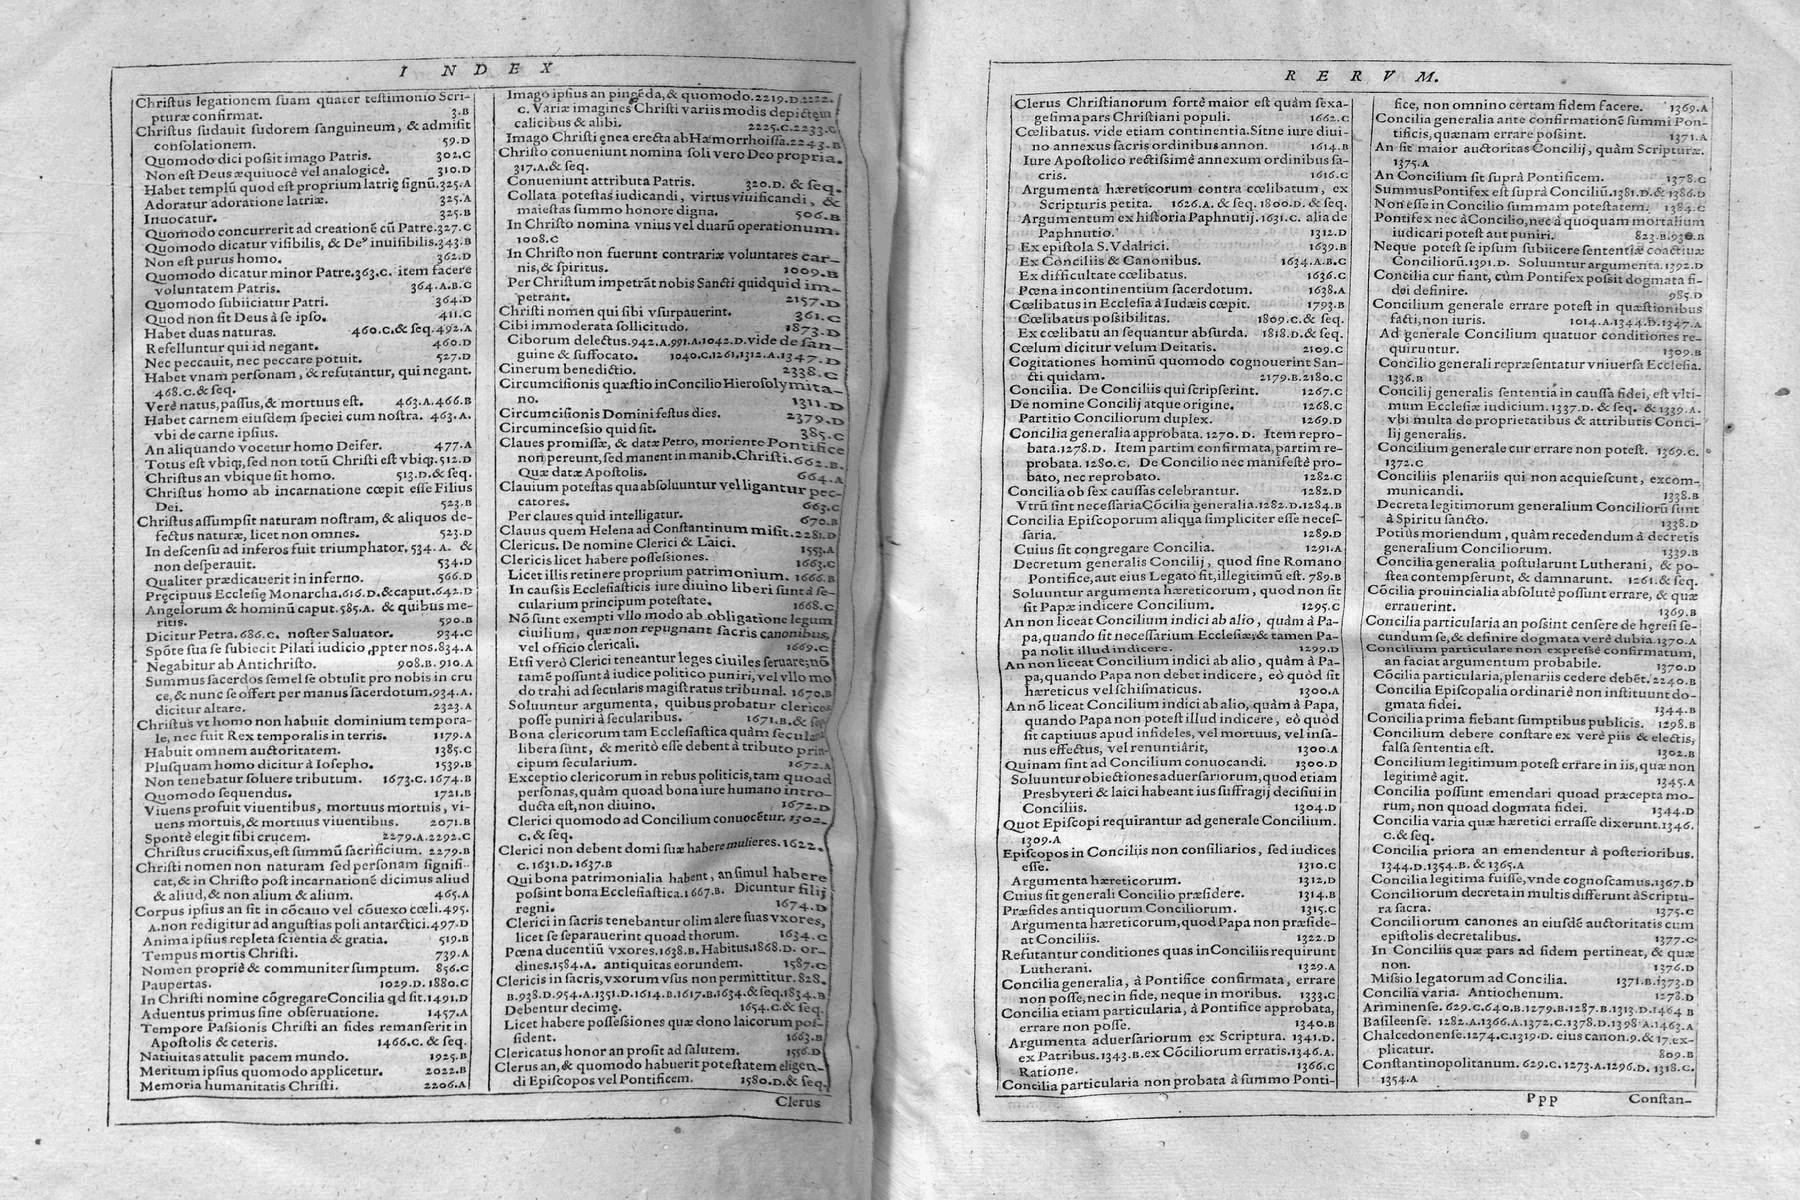 INDEX
Christus legationem suam quater testimonio Scri-
pturæ confirmat. 3.B
Christus sudauit sudorem sanguineum, & admisit
consolationem. 59.D
Quomodo dici possit imago Patris. 302.C
Non est Deus æquiuocè vel analogicè. 310.D
Habet templũ quod est proprium latrię signũ. 325.A
Adoratur adoratione latriæ. 325.A
Inuocatur. 325.B
Quomodo concurrerit ad creationẽ cũ Patre. 327.C
Quomodo dicatur visibilis, & Deꝰ inuisibilis. 343.B
Non est purus homo. 362.D
Quomodo dicatur minor Patre. 363.C. item facere
voluntatem Patris. 364.A.B.C
Quomodo subiiciatur Patri. 364.D
Quod non sit Deus à se ipso. 411.C
Habet duas naturas. 460.C.& seq. 492.A
Refelluntur qui id negant. 460.D
Nec peccauit, nec peccare potuit. 527.D
Habet vnam personam, & refutantur, qui negant.
468.C.& seq.
Verè natus, passus, & mortuus est. 463.A.466.B
Habet carnem eiusdem speciei cum nostra. 463.A.
vbi de carne ipsius.
An aliquando vocetur homo Deifer. 477.A
Totus est vbiq;, sed non totũ Christi est vbiq;. 512.D
Christus an vbique sit homo. 513.D.& seq.
Christus homo ab incarnatione cœpit esse Filius
Dei. 523.B
Christus assumpsit naturam nostram, & aliquos de-
fectus naturæ, licet non omnes. 523.D
In descensu ad inferos fuit triumphator. 534.A. &
non desperauit. 534.D
Qualiter prædicauerit in inferno. 566.D
Pręcipuus Ecclesię Monarcha. 616.D.& caput. 642.D
Angelorum & hominũ caput. 585.A. & quibus me-
ritis. 590.B
Dicitur Petra. 686.C. noster Saluator. 934.C
Spõte sua se subiecit Pilati iudicio ꝓpter nos. 834.A
Negabitur ab Antichristo. 908.B.910.A
Summus sacerdos semel se obtulit pro nobis in cru
ce, & nunc se offert per manus sacerdotum. 934.A.
dicitur altare. 2323.A
Christus vt homo non habuit dominium tempora-
le, nec fuit Rex temporalis in terris. 1179.A
Habuit omnem auctoritatem. 1385.C
Plusquam homo dicitur à Iosepho. 1539.B
Non tenebatur soluere tributum. 1673.C.1674.B
Quomodo sequendus. 1721.B
Viuens profuit viuentibus, mortuus mortuis, vi-
uens mortuis, & mortuus viuentibus. 2071.B
Spontè elegit sibi crucem. 2279.A.2292.C
Christus crucifixus, est summũ sacrificium. 2279.B
Christi nomen non naturam sed personam signifi-
cat, & in Christo post incarnationẽ dicimus aliud
& aliud, & non alium & alium. 465.A
Corpus ipsius an sit in cõcauo vel cõuexo cœli. 495.
A. non redigitur ad angustias poli antarctici. 497.D
Anima ipsius repleta scientia & gratia. 519.B
Tempus mortis Christi. 739.A
Nomen propriè & communiter sumptum. 856.C
Paupertas. 1029.D.1880.C
In Christi nomine cõgregare Concilia qd sit. 1491.D
Aduentus primus sine obseruatione. 1457.A
Tempore Passionis Christi an fides remanserit in
Apostolis & ceteris. 1466.C.& seq.
Natiuitas attulit pacem mundo. 1925.B
Meritum ipsius quomodo applicetur. 2022.B
Memoria humanitatis Christi. 2206.A
Imago ipsius an pingẽda, & quomodo. 2219.D.2222.
C. Variæ imagines Christi variis modis depictæ in
calicibus & alibi. 2225.C.2233.C
Imago Christi ęnea erecta ab Hæmorrhoissa. 2243.B
Christo conueniunt nomina soli vero Deo propria.
317.A.& seq.
Conueniunt attributa Patris. 320.D. & seq.
Collata potestas iudicandi, virtus viuificandi, &
maiestas summo honore digna. 506.B
In Christo nomina vnius vel duarũ operationum.
1008.C
In Christo non fuerunt contrariæ voluntates car-
nis, & spiritus. 1009.B
Per Christum impetrãt nobis Sancti quidquid im-
petrant. 2157.D
Christi nomen qui sibi vsurpauerint. 361.C
Cibi immoderata sollicitudo. 1873.D
Ciborum delectus. 942.A.991.A.1042.D. vide de san-
guine & suffocato. 1040.C.1261.1312.A.1347.D
Cinerum benedictio. 2338.C
Circumcisionis quæstio in Concilio Hierosolymita-
no. 1311.D
Circumcisionis Domini festus dies. 2379.D
Circumincessio quid sit. 385.C
Claues promissæ, & datæ Petro, moriente Pontifice
non pereunt, sed manent in manib. Christi. 662.B.
Quæ datæ Apostolis. 664.A
Clauium potestas qua absoluuntur vel ligantur pec-
catores. 663.C
Per claues quid intelligatur. 670.B
Clauus quem Helena ad Constantinum misit. 2281.D
Clericus. De nomine Clerici & Laici. 1553.A
Clericis licet habere possessiones. 1663.C
Licet illis retinere proprium patrimonium. 1666.B
In caussis Ecclesiasticis iure diuino liberi sunt à se-
cularium principum potestate. 1668.C
Nõ sunt exempti vllo modo ab obligatione legum
ciuilium, quæ non repugnant sacris canonibus,
vel officio clericali. 1669.C
Etsi verò Clerici teneantur leges ciuiles seruare; nõ
tamẽ possunt à iudice politico puniri, vel vllo mo
do trahi ad secularis magistratus tribunal. 1670.B
Soluuntur argumenta, quibus probatur clericos
posse puniri à secularibus. 1671.B.& seq
Bona clericorum tam Ecclesiastica quàm secula-
libera sunt, & meritò esse debent à tributo prin-
cipum secularium. 1672.A
Exceptio clericorum in rebus politicis, tam quoad
personas, quàm quoad bona iure humano intro-
ducta est, non diuino. 1672.D
Clerici quomodo ad Concilium conuocẽtur. 1302.
C.& seq.
Clerici non debent domi suæ habere mulieres. 1622.
C. 1631.D. 1637.B
Qui bona patrimonialia habent, an simul habere
possint bona Ecclesiastica. 1667.B. Dicuntur filij
regni. 1674.D
Clerici in sacris tenebantur olim alere suas vxores,
licet se separauerint quoad thorum. 1634.C
Pœna ducentiũ vxores. 1638.B. Habitus. 1868.D. or-
dines. 1584.A. antiquitas eorundem. 1587.C
Clericis in sacris, vxorum vsus non permittitur. 828.
B.938.D.954.A.1351.D.1614.B.1617.B.1634.& seq. 1834.B
Debentur decimę. 1654.C.& seq.
Licet habere possessiones quæ dono laicorum pos-
sident. 1663.B
Clericatus honor an prosit ad salutem. 1556.D
Clerus an, & quomodo habuerit potestatem eligen-
di Episcopos vel Pontificem. 1580.D.& seq.
Clerus
RERVM.
Clerus Christianorum fortè maior est quàm sexa-
gesima pars Christiani populi. 1662.C
Cœlibatus. vide etiam continentia. Sitne iure diui-
no annexus sacris ordinibus annon. 1614.B
Iure Apostolico rectissimè annexum ordinibus sa-
cris. 1616.C
Argumenta hæreticorum contra cœlibatum, ex
Scripturis petita. 1626.A.& seq. 1800.D.& seq.
Argumentum ex historia Paphnutij. 1631.C. alia de
Paphnutio. 1312.D
Ex epistola S. Vdalrici. 1639.B
Ex Conciliis & Canonibus. 1634.A.B.C
Ex difficultate cœlibatus. 1636.C
Pœna incontinentium sacerdotum. 1638.A
Cœlibatus in Ecclesia à Iudæis cœpit. 1793.B
Cœlibatus possibilitas. 1809.C.& seq.
Ex cœlibatu an sequantur absurda. 1818.D.& seq.
Cœlum dicitur velum Deitatis. 2109.C
Cogitationes hominũ quomodo cognouerint San-
cti quidam. 2179.B.2180.C
Concilia. De Conciliis qui scripserint. 1267.C
De nomine Concilij atque origine. 1268.C
Partitio Conciliorum duplex. 1269.D
Concilia generalia approbata. 1270.D. Item repro-
bata. 1278.D. Item partim confirmata, partim re-
probata. 1280.C. De Concilio nec manifestè pro-
bato, nec reprobato. 1282.C
Concilia ob sex caussas celebrantur. 1282.D
Vtrũ sint necessaria Cõcilia generalia. 1282.D.1284.B
Concilia Episcoporum aliqua simpliciter esse neces-
saria. 1289.D
Cuius sit congregare Concilia. 1291.A
Decretum generalis Concilij, quod sine Romano
Pontifice, aut eius Legato sit, illegitimũ est. 789.B
Soluuntur argumenta hæreticorum, quod non sit
sit Papæ indicere Concilium. 1295.C
An non liceat Concilium indici ab alio, quàm à Pa-
pa, quando sit necessarium Ecclesiæ; & tamen Pa-
pa nolit illud indicere. 1299.D
An non liceat Concilium indici ab alio, quàm à Pa-
pa, quando Papa non debet indicere, eò quòd sit
hæreticus vel schismaticus. 1300.A
An nõ liceat Concilium indici ab alio, quàm à Papa,
quando Papa non potest illud indicere, eò quòd
sit captiuus apud infideles, vel mortuus, vel insa-
nus effectus, vel renuntiârit, 1300.A
Quinam sint ad Concilium conuocandi. 1300.D
Soluuntur obiectiones aduersariorum, quod etiam
Presbyteri & laici habeant ius suffragij decisiui in
Conciliis. 1304.D
Quot Episcopi requirantur ad generale Concilium.
1309.A
Episcopos in Conciliis non consiliarios, sed iudices
esse. 1310.C
Argumenta hæreticorum. 1312.D
Cuius sit generali Concilio præsidere. 1314.B
Præsides antiquorum Conciliorum. 1315.C
Argumenta hæreticorum, quod Papa non præside-
at Conciliis. 1322.D
Refutantur conditiones quas in Conciliis requirunt
Lutherani. 1329.A
Concilia generalia, à Pontifice confirmata, errare
non posse, nec in fide, neque in moribus. 1333.C
Concilia etiam particularia, à Pontifice approbata,
errare non posse. 1340.B
Argumenta aduersariorum ex Scriptura. 1341.D.
ex Patribus. 1343.B. ex Cõciliorum erratis. 1346.A.
Ratione. 1366.C
Concilia particularia non probata à summo Ponti-
fice, non omnino certam fidem facere. 1369.A
Concilia generalia ante confirmationẽ summi Pon-
tificis, quænam errare possint. 1371.A
An sit maior auctoritas Concilij, quàm Scripturæ.
1375.A
An Concilium sit suprà Pontificem. 1378.C
Summus Pontifex est suprà Conciliũ. 1381.D.& 1386.D
Non esse in Concilio summam potestatem. 1384.C
Pontifex nec à Concilio, nec à quoquam mortalium
iudicari potest aut puniri. 823.B.930.B
Neque potest se ipsum subiicere sententiæ coactiuæ
Conciliorũ. 1391.D. Soluuntur argumenta. 1392.D
Concilia cur fiant, cùm Pontifex possit dogmata fi-
dei definire. 985.D
Concilium generale errare potest in quæstionibus
facti, non iuris. 1014.A.1344.D.1347.A
Ad generale Concilium quatuor conditiones re-
quiruntur. 1309.B
Concilio generali repræsentatur vniuersa Ecclesia.
1336.B
Concilij generalis sententia in caussa fidei, est vlti-
mum Ecclesiæ iudicium. 1337.D. & seq. & 1339.A.
vbi multa de proprietatibus & attributis Conci-
lij generalis.
Concilium generale cur errare non potest. 1369.C.
1372.C
Conciliis plenariis qui non acquiescunt, excom-
municandi. 1338.B
Decreta legitimorum generalium Conciliorũ sunt
à Spiritu sancto. 1338.D
Potiùs moriendum, quàm recedendum à decretis
generalium Conciliorum. 1339.B
Concilia generalia postularunt Lutherani, & po-
stea contempserunt, & damnarunt. 1261.& seq.
Cõcilia prouincialia absolutè possunt errare, & quæ
errauerint. 1369.B
Concilia particularia an possint censere de hęresi se-
cundum se, & definire dogmata verè dubia. 1370.A
Concilium particulare non expressè confirmatum,
an faciat argumentum probabile. 1370.D
Cõcilia particularia, plenariis cedere debẽt. 2240.B
Concilia Episcopalia ordinariè non instituunt do-
gmata fidei. 1344.B
Concilia prima fiebant sumptibus publicis. 1298.B
Concilium debere constare ex verè piis & electis,
falsa sententia est. 1302.B
Concilium legitimum potest errare in iis, quæ non
legitimè agit. 1345.A
Concilia possunt emendari quoad præcepta mo-
rum, non quoad dogmata fidei. 1344.D
Concilia varia quæ hæretici errasse dixerunt. 1346.
C.& seq.
Concilia priora an emendentur à posterioribus.
1344.D.1354.B.& 1365.A
Concilia legitima fuisse, vnde cognoscamus. 1367.D
Conciliorum decreta in multis differunt à Scriptu-
ra sacra. 1375.C
Conciliorum canones an eiusdẽ auctoritatis cum
epistolis decretalibus. 1377.C
In Conciliis quæ pars ad fidem pertineat, & quæ
non. 1376.D
Missio legatorum ad Concilia. 1371.B.1373.D
Concilia varia. Antiochenum. 1278.D
Ariminense. 629.C.640.B.1279.B.1287.B.1313.D.1464 B
Basileense. 1282.A.1366.A.1372.C.1378.D.1398 A.1463.A
Chalcedonense. 1274.C.1319.D. eius canon. 9. & 17. ex-
plicatur. 809.B
Constantinopolitanum. 629.C.1273.A.1296.D. 1318.C.
1354.A
Ppp
Constan-